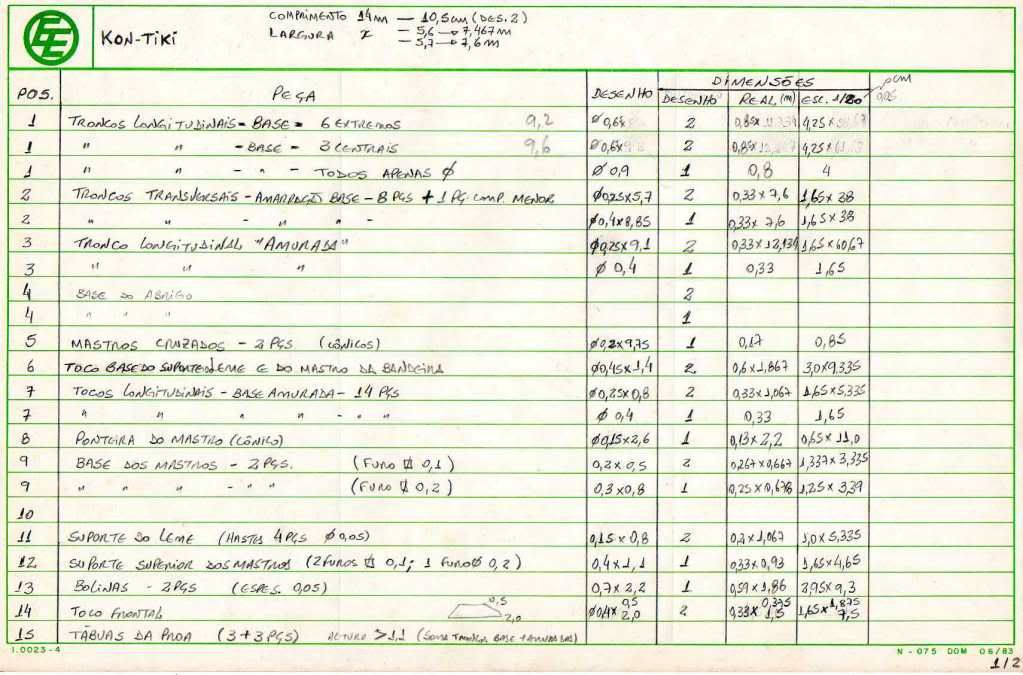 EE
KON-TIKI
COMPRIMENTO 14m — 10,5cm (DES. 2)
LARGURA 7 — 5,6 → 7,467m
— 5,7 → 7,6m
POS. PEÇA DESENHO DIMENSÕES
DESENHO REAL (m) ESC. 1/20 cm
0,05
1 TRONCOS LONGITUDINAIS - BASE - 6 EXTREMOS 9,2 Ø 0,6x 2 0,85x 4,25x
1 " " - BASE - 3 CENTRAIS 9,6 Ø 0,6x9,8 2 0,85x 4,25x
1 " " - " - TODOS APENAS Ø Ø 0,9 1 0,8 4
2 TRONCOS TRANSVERSAIS - AMARRAÇÃO BASE - 8 PÇS + 1 PÇ. COMP. MENOR Ø0,25x5,7 2 0,33 x 7,6 1,65x 38
2 " " - " " - Ø0,4x8,85 1 0,33x 7,6 1,65x38
3 TRONCO LONGITUDINAL "AMURADA" Ø0,25x9,1 2 0,33x12,134 1,65x60,67
3 " " " Ø 0,4 1 0,33 1,65
4 BASE DO ABRIGO 2
4 " " " 1
5 MASTROS CRUZADOS - 2 PÇS (CÔNICOS) Ø0,2x9,75 1 0,17 0,85
6 TOCO BASE DO SUPORTE DO LEME E DO MASTRO DA BANDEIRA Ø0,45x1,4 2 0,6x1,867 3,0x9,335
7 TOCOS LONGITUDINAIS - BASE AMURADA - 14 PÇS Ø0,25x0,8 2 0,33x1,067 1,65x5,335
7 " " " " - " - Ø 0,4 1 0,33 1,65
8 PONTEIRA DO MASTRO (CÔNICO) Ø0,15x2,6 1 0,13x2,2 0,65x 11,0
9 BASE DOS MASTROS - 2 PÇS. (FURO 0,1) 0,2x 0,5 2 0,267x0,667 1,337x3,335
9 " " " - " " (FURO 0,2) 0,3 x0,8 1 0,25x0,678 1,25x 3,39
10
11 SUPORTE DO LEME (HASTES 4 PÇS Ø0,05) 0,15x 0,8 2 0,2x1,067 1,0x5,335
12 SUPORTE SUPERIOR DOS MASTROS (2 FUROS 0,1; 1 FURO Ø 0,2) 0,4x1,1 1 0,33x0,93 1,65x4,65
13 BOLINAS - 2 PÇS (ESPES. 0,05) 0,7x 2,2 1 0,59x1,86 2,95x9,3
14 TOCO FRONTAL 0,5 2,0 Ø0,4x 0,5 2,0 2 0,33x 0,375 1,5 1,65x 1,875 7,5
15 TÁBUAS DA PROA (3+3 PÇS) ALTURA > 1,1 (SOMA TRONCOS BASE + AMURADAS)
1.0023-4
N - 075 DOM 06/83
1/2